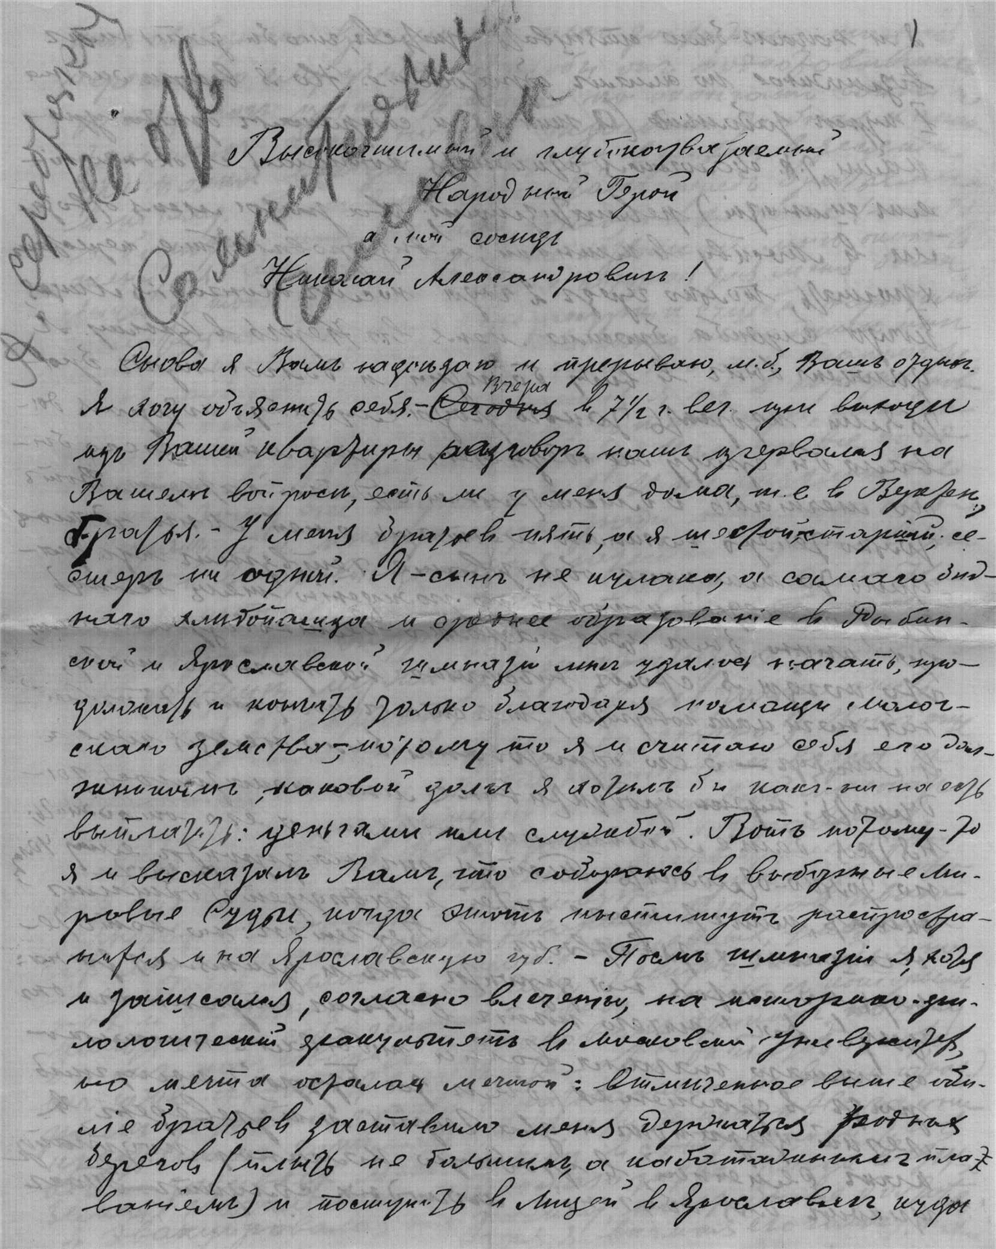 1
Высокочтимый и глубокоуважаемый
Народный Герой
а мой сосед
Николай Александрович!
Снова я Вамъ надоѣдаю и прерываю, м.б, Вашъ отдых.
Я хочу объяснить себя. – Сегодня Вчера в 7½ г. веч. при выходѣ
изъ Вашей квартиры разговоръ нашъ прервался на
Вашемъ вопросѣ, есть ли у меня дома, т.е. в Верхен.,
братья. – У меня братьев пять, а я шестой: старшій; се-
стеръ ни одной. Я – сынъ не кулака, а самаго бѣд-
наго хлѣбопашца и среднее образованіе в Рыбин-
ской и Ярославской гимназіи мнѣ удалось начать, про-
должить и кончить только благодаря помощи Молог-
скаго земства; – потому то я и считаю себя его дол-
жникомъ, каковой долгъ я хотѣлъ бы какъ-ни на есть
выплатить: деньгами или службой. Вотъ потому-то
я и высказалъ Вамъ, что собираюсь в выборные Ми-
ровые Судьи, когда этотъ институтъ распростра-
нится и на Ярославскую губ. – Послѣ гимназіи я, хотя
и записался, согласно влеченію, на историко-фи-
лологическій факультетъ в Московскій Университ.,
но мечта осталась мечтой: отмѣченное выше оби-
ліе братьев заставило меня держаться родных
берегов (плыть не большимъ, а каботажнымъ пла-
ваніемъ) и поступить в Лицей в Ярославлѣ, куда